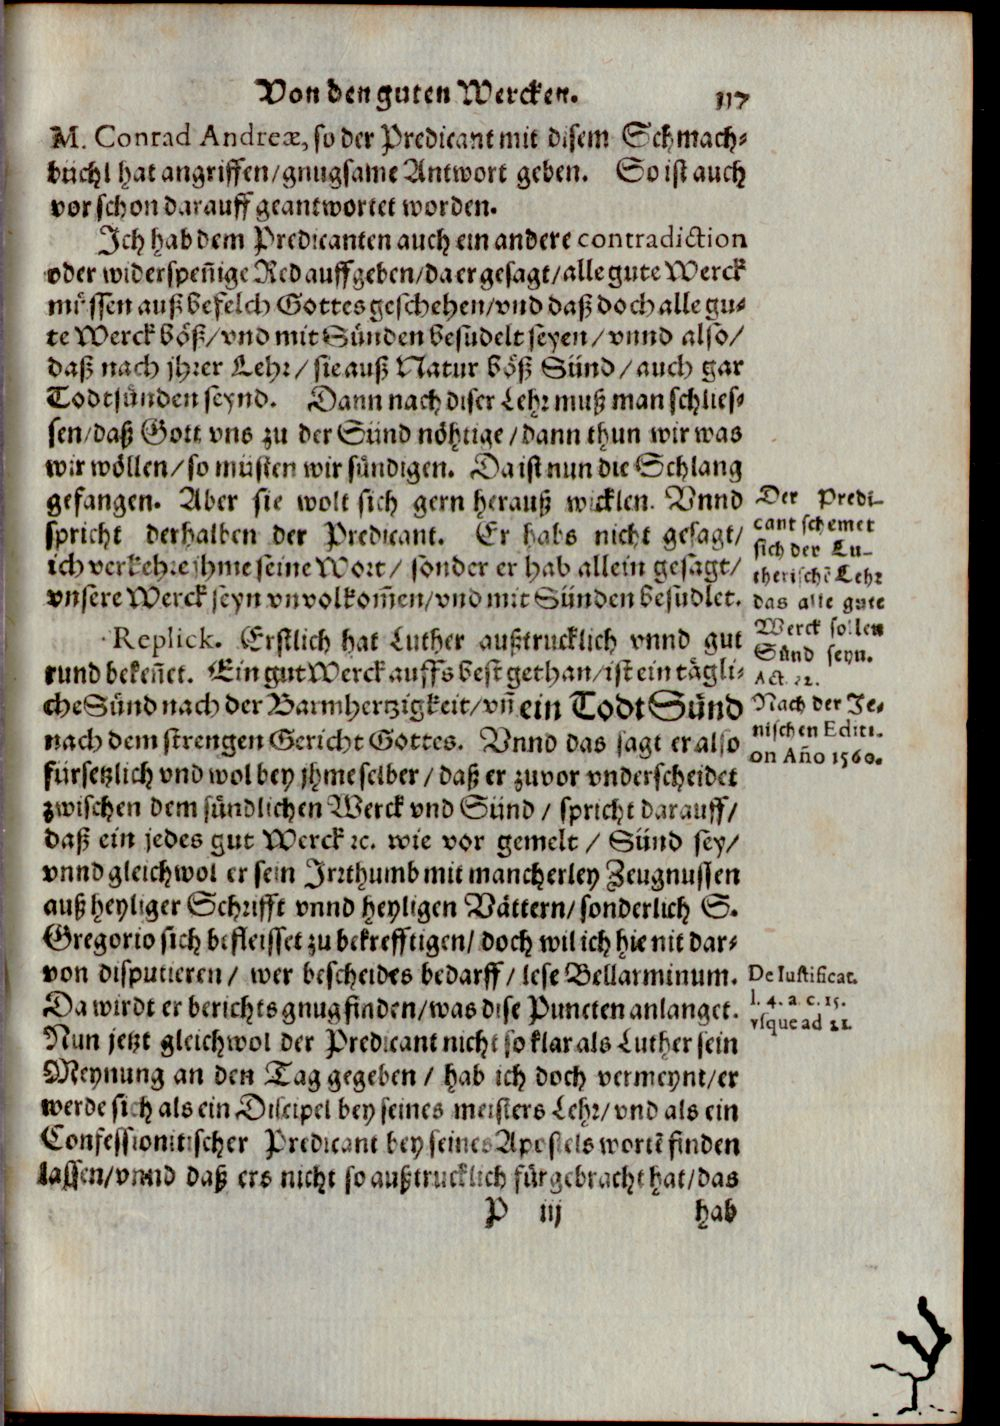 Von den guten Wercken. 117
M. Conrad Andreæ, so der Predicant mit disem Schmach-
büchl hat angriffen/gnugsame Antwort geben. So ist auch
vor schon darauff geantwortet worden.
Ich hab dem Predicanten auch ein andere contradiction
oder widerspeñige Red auffgeben/da er gesagt/alle gute Werck
müssen auß befelch Gottes geschehen/vnd daß doch alle gu-
te Werck böß/vnd mit Sünden besudelt seyen/vnnd also/
daß nach jhrer Lehr/sie auß Natur böß Sünd/auch gar
Todtsünden seynd. Dann nach diser Lehr muß man schlies-
sen/daß Gott vns zu der Sünd nöhtige/dann thun wir was
wir wöllen/so müsten wir sündigen. Da ist nun die Schlang
gefangen. Aber sie wolt sich gern herauß wicklen. Vnnd
spricht derhalben der Predicant. Er habs nicht gesagt/
ich verkehre jhme seine Wort/sonder er hab allein gesagt/
vnsere Werck seyn vnvolkom̃en/vnd mit Sünden besudlet.
Der Predi-
cant schemet
sich der Lu-
therischẽ Lehr
das alle gute
Werck sollen
Sünd seyn.
Replick. Erstlich hat Luther außtrucklich vnnd gut
rund bekeñet. Ein gut Werck auffs best gethan/ist ein tägli-
che Sünd nach der Barmhertzigkeit/vñ ein Todt Sünd
nach dem strengen Gericht Gottes. Vnnd das sagt er also
fürsetzlich vnd wol bey jhme selber/daß er zuvor vnderscheidet
zwischen dem sündlichen Werck vnd Sünd/spricht darauff/
daß ein jedes gut Werck ꝛc. wie vor gemelt/Sünd sey/
vnnd gleichwol er sein Irrthumb mit mancherley Zeugnussen
auß heyliger Schrifft vnnd heyligen Vättern/sonderlich S.
Gregorio sich befleisset zu bekrefftigen/doch wil ich hie nit dar-
von disputieren/wer bescheides bedarff/lese Bellarminum.
Da wirdt er berichts gnug finden/was dise Puncten anlanget.
Nun jetzt gleichwol der Predicant nicht so klar als Luther sein
Meynung an den Tag gegeben/hab ich doch vermeynt/er
werde sich als ein Discipel bey seines meisters Lehr/vnd als ein
Confessionitischer Predicant bey seines Apostels wortẽ finden
lassen/vnnd daß ers nicht so außtrucklich fürgebracht hat/das
Nach der Je-
nischen Editi-
on Año 1560.
De Iustificat.
l. 4. a c. 15.
vsque ad 22.
P iij hab